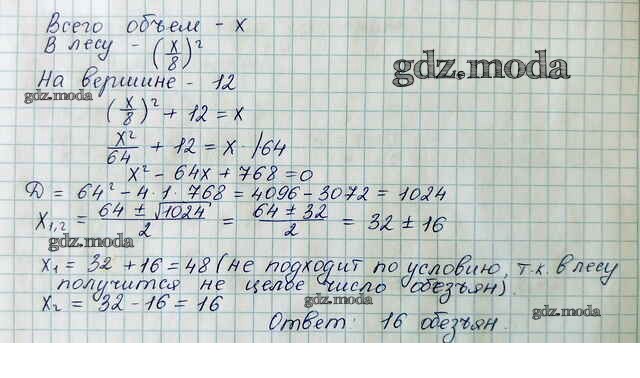 Всего объем - x
В лесу - (x/8)²
gdz.moda
На вершине - 12
gdz.moda
(x/8)² + 12 = x
x²/64 + 12 = x ·/64
x² - 64x + 768 = 0
D = 64² - 4·1·768 = 4096 - 3072 = 1024
x₁,₂ = (64 ± √1024)/2 = (64 ± 32)/2 = 32 ± 16
gdz.moda
x₁ = 32 + 16 = 48 (не подходит по условию, т.к. в лесу
получится не целое число обезьян).
x₂ = 32 - 16 = 16
gdz.moda
Ответ: 16 обезьян.
gdz.moda